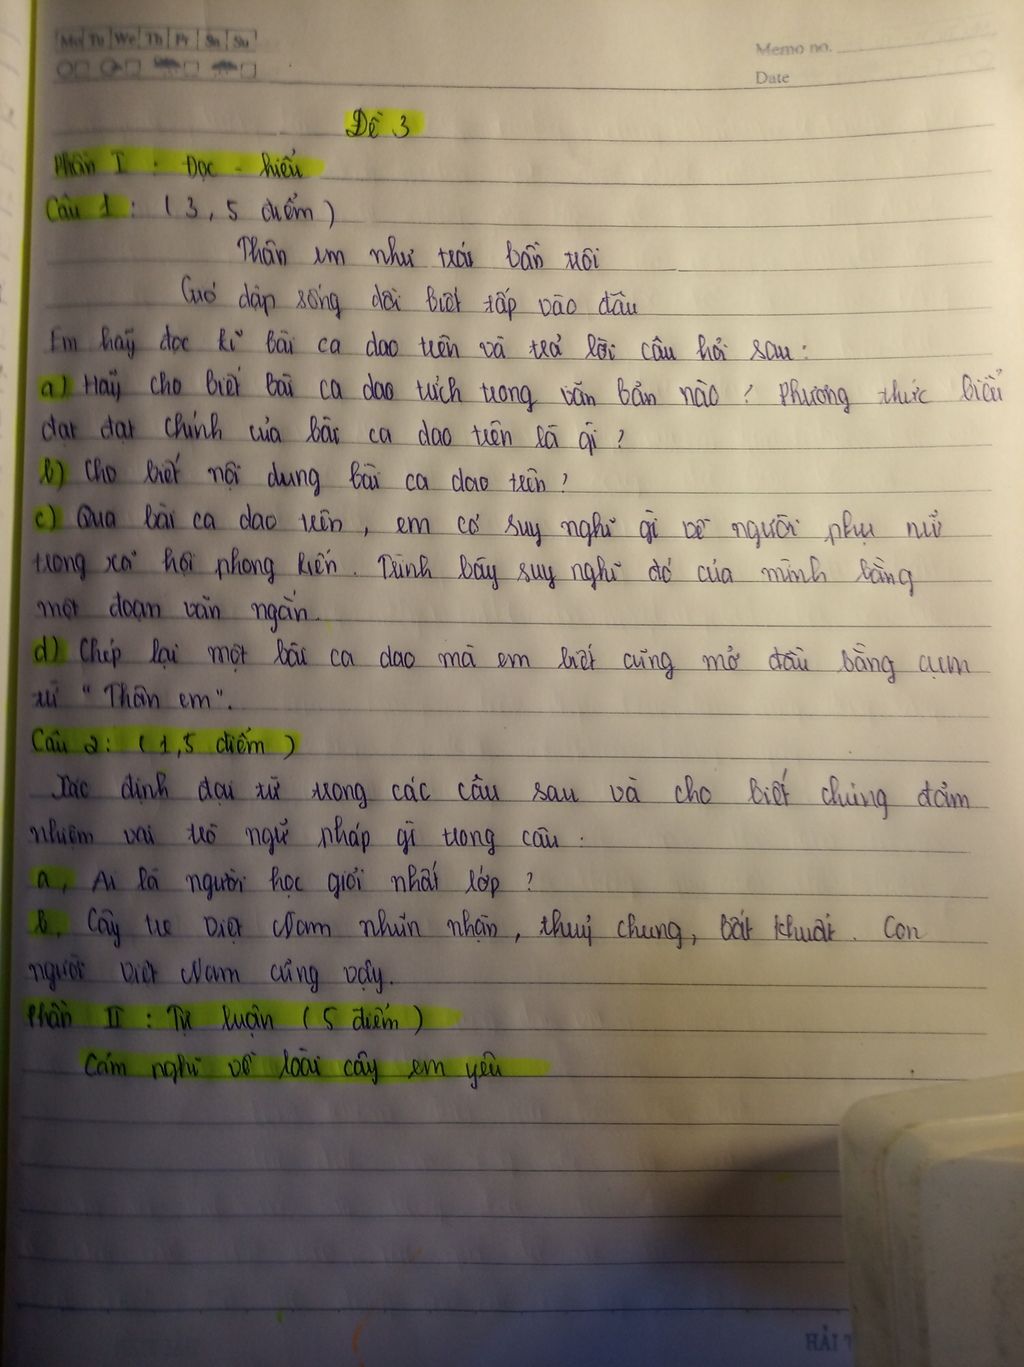 Mo Tu We Th Fr Sa Su
Memo no.
Date
Đề 3
Phần I : Đọc - hiểu
Câu 1 : ( 3, 5 điểm )
Thân em như trái bần trôi
Gió dập sóng dồi biết tấp vào đâu
Em hãy đọc kĩ bài ca dao trên và trả lời câu hỏi sau :
a) Hãy cho biết bài ca dao trích trong văn bản nào ? Phương thức biểu
đạt đạt chính của bài ca dao trên là gì ?
b) Cho biết nội dung bài ca dao trên ?
c) Qua bài ca dao trên , em có suy nghĩ gì về người phụ nữ
trong xã hội phong kiến . Trình bày suy nghĩ đó của mình bằng
một đoạn văn ngắn.
d) Chép lại một bài ca dao mà em biết cũng mở đầu bằng cụm
từ " Thân em ".
Câu 2 : ( 1,5 điểm )
Xác định đại từ trong các câu sau và cho biết chúng đảm
nhiệm vai trò ngữ pháp gì trong câu :
a, Ai là người học giỏi nhất lớp ?
b, Cây tre Việt Nam nhũn nhặn , thuỷ chung , bất khuất . Con
người Việt Nam cũng vậy.
Phần II : Tự luận ( 5 điểm )
Cảm nghĩ về loài cây em yêu
HẢI T